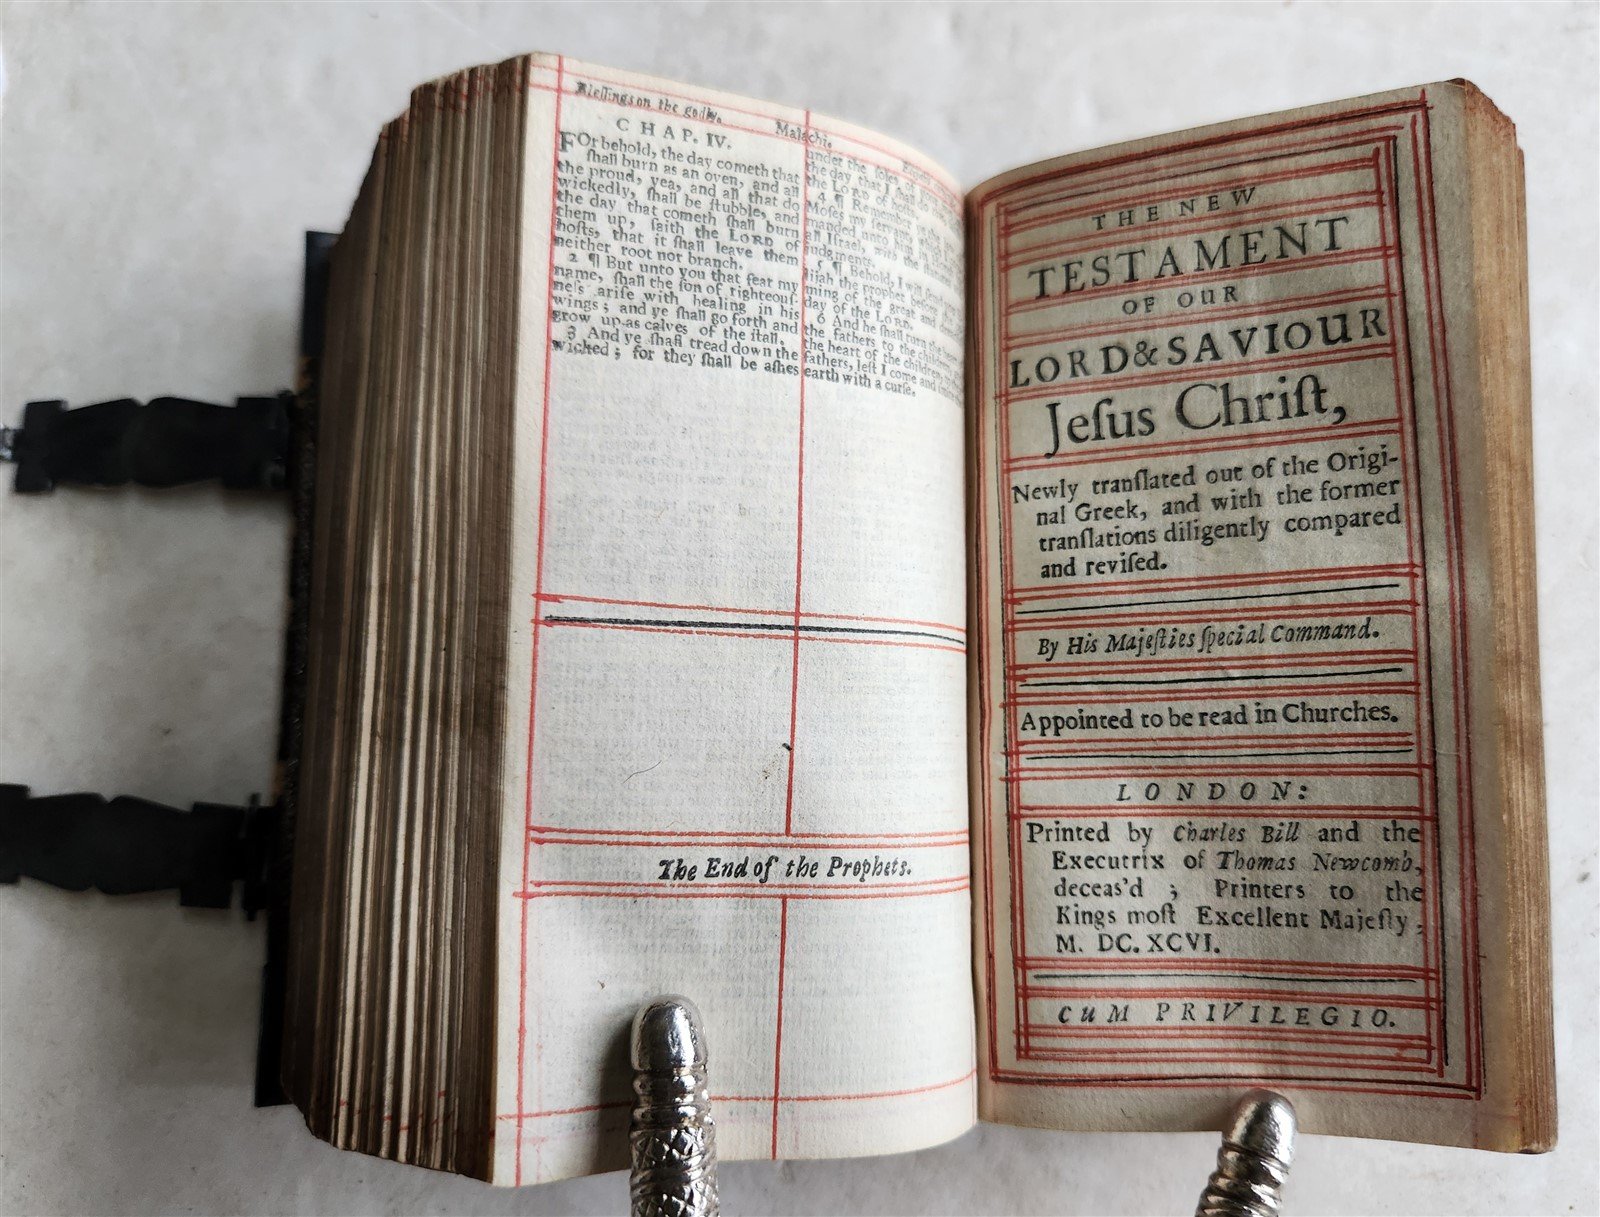 Blessings on the godly.
Malachi.
CHAP. IV.
FOr behold, the day cometh that
ſhall burn as an oven, and all
the proud, yea, and all that do
wickedly, ſhall be ſtubble, and
the day that cometh ſhall burn
them up, ſaith the LORD of
hoſts, that it ſhall leave them
neither root nor branch.
2 ¶ But unto you that fear my
name, ſhall the ſon of righteouſ-
neſs ariſe with healing in his
wings; and ye ſhall go forth and
grow up as calves of the ſtall.
3 And ye ſhall tread down the
wicked; for they ſhall be aſhes
under the ſoles of
the day that I ſhall do
the LORD of hoſts.
4 ¶ Remember
Moſes my ſervant, which
manded unto him in
all Iſrael, with the ſtatutes
judgments.
5 ¶ Behold, I will ſend
lijah the prophet before the
ming of the great and
day of the LORD.
6 And he ſhall turn the
the fathers to the children,
the heart of the children
fathers, leſt I come and
earth with a curſe.
The End of the Prophets.
THE NEW
TESTAMENT
OF OUR
LORD & SAVIOUR
Jeſus Chriſt,
Newly tranſlated out of the Origi-
nal Greek, and with the former
tranſlations diligently compared
and reviſed.
By His Majeſties ſpecial Command.
Appointed to be read in Churches.
LONDON:
Printed by Charles Bill and the
Executrix of Thomas Newcomb,
deceas'd ; Printers to the
Kings moſt Excellent Majeſty;
M. DC. XCVI.
CUM PRIVILEGIO.